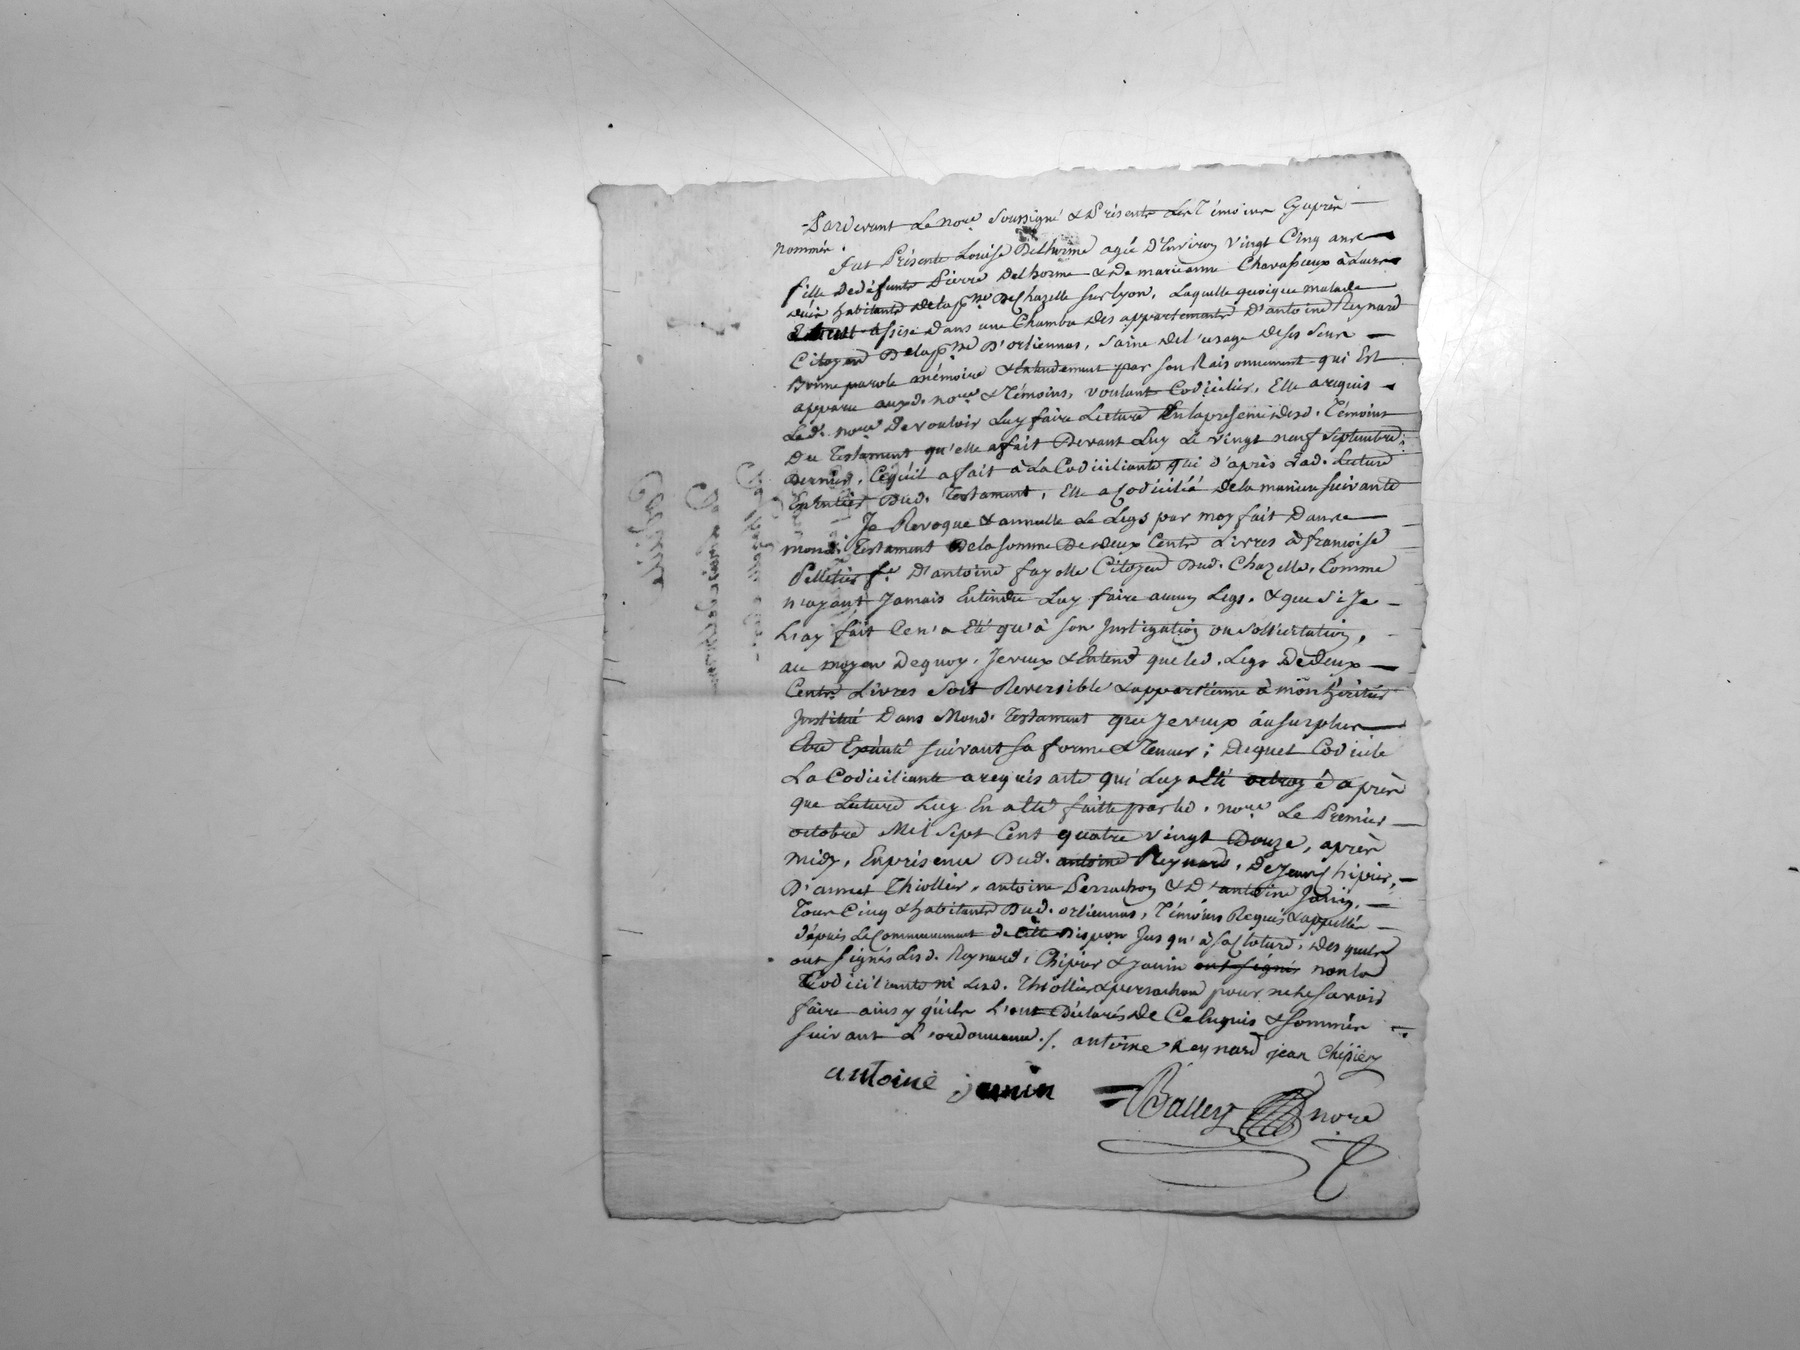 Pardevant Le nore Soussigné & Présents Les Témoins Cyaprès
Nommés.
fut Présente Louise Delhorme agée D'Environ vingt Cinq ans
fille Dedéfunts Pierre Delhorme & De marieanne Chavassieux à Luire
Habitante Delap.sse De Chazelle Sur lyon, Laquelle quoique malade
assise Dans une Chambre Des appartements D'antoine Reynard
Citoyen Delap.sse D'orliennas, Saine de l'usage deses Sens
Bonne parole mémoire & Entendement par son Raisonnement qui Est
apparu auxd. nore & Témoins, voulant Codiciler, Elle arequis
Led. nore Devouloir Luy faire Lecture En laprésence desd. Témoins
Du Testament qu'elle afait Devant Luy Le vingt neuf Septembre
Dernier, Cequ'il afait à La Codiciliante qui d'après Lad. Lecture
Entière Dud. Testament, Elle a Codicilié Dela manière Suivante
Je Revoque & annulle Le Legs par moy fait Dans
mond. Testament Dela Somme De deux Cents Livres à françoise
Pelletier fe D'antoine fayolle Citoyen Dud. Chazelle, Comme
n'ayant Jamais Entendu Luy faire aucun Legs, & que Si Je
L'ay fait Cen'a Eté qu'à Son Instigation ou Sollicitation,
au moyen Dequoy, Jeveux & Entend que led. Legs De deux
Cents Livres Soit Reversible & appartienne à mon héritier
Institué Dans Mond. Testament que Jeveux au surplus
Etre Exécuté Suivant Sa forme & Teneur; Duquel Codicile
La Codiciliante arequis acte qui Luy a Eté octroyé après
que Lecture Luy En a Eté faitte par led. nore Le Premier
octobre Mil Sept Cent quatre vingt Douze, après
midy, En présence Dud. antoine Reynard, De Jean Chipier,
D'annet Thiollier, antoine Perrachon & D'antoine Janin,
Tous Cinq & habitants Dud. orliennas, Témoins Requis & appellés
dépuis Le Commencement de Cette Dispon Jusqu'à Sa Cloture, Des quels
ont Signés Lesd. Reynard, Chipier & Janin ont Signés non la
Codiciliante ni Lesd. Thiollier & perrachon pour ne le Savoir
faire ainsy qu'ils L'ont Déclarés De Ce Enquis & Sommés
Suivant L'ordonnance ./. antoine Reynard jean Chipier
antoine janin
Balley nore